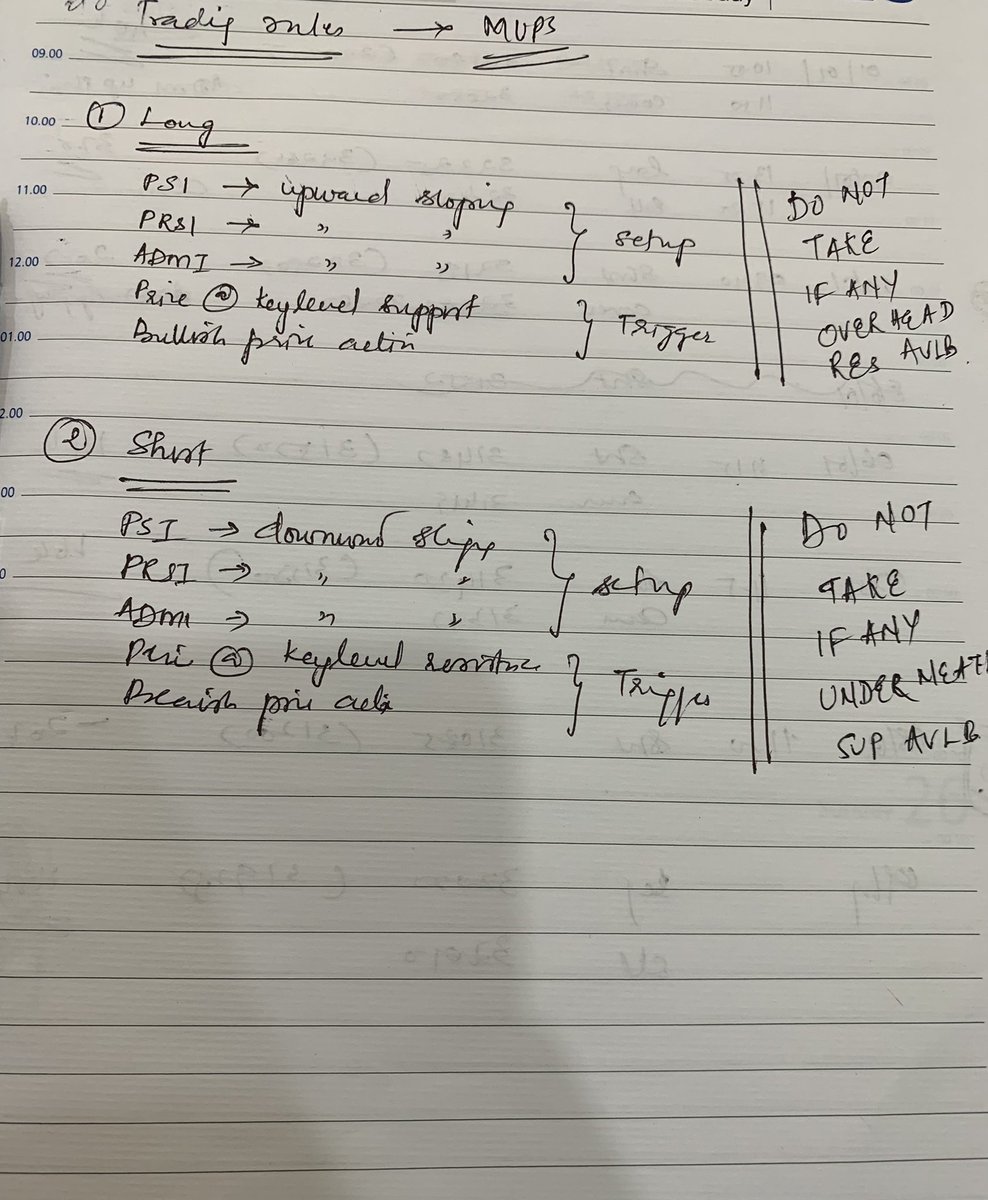 Trading rules → MVPS
09.00
10.00 ① Long
11.00 PSI → upward sloping
PRSI → " "
12.00 ADMI → " "
} setup
Price @ key level support
01.00 Bullish price action
} Trigger
DO NOT
TAKE
IF ANY
OVERHEAD
RES AVLB.
2.00
② Short
00
PSI → downward sloping
0 PRSI → " "
ADMI → " "
} setup
Price @ key level resistance
Bearish price action
} Trigger
DO NOT
TAKE
IF ANY
UNDERNEATH
SUP AVLB